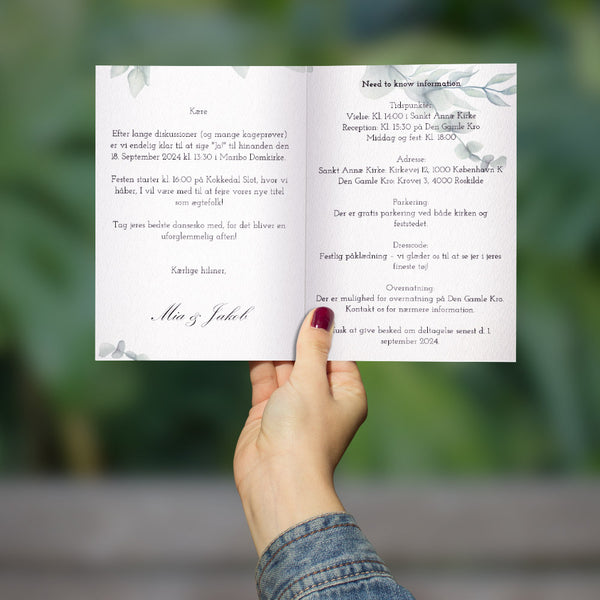 Kære
Efter lange diskussioner (og mange kageprøver)
er vi endelig klar til at sige "Ja!" til hinanden den
18. September 2024 kl. 13:30 i Maribo Domkirke.
Festen starter kl. 16:00 på Kokkedal Slot, hvor vi
håber, I vil være med til at fejre vores nye titel
som ægtefolk!
Tag jeres bedste dansesko med, for det bliver en
uforglemmelig aften!
Kærlige hilsner,
Mia & Jakob
Need to know information
Tidspunkter:
Vielse: Kl. 14:00 i Sankt Annæ Kirke
Reception: Kl. 15:30 på Den Gamle Kro
Middag og fest: Kl. 18:00
Adresse:
Sankt Annæ Kirke: Kirkevej 12, 1000 København K
Den Gamle Kro: Krovej 3, 4000 Roskilde
Parkering:
Der er gratis parkering ved både kirken og
feststedet.
Dresscode:
Festlig påklædning – vi glæder os til at se jer i jeres
fineste tøj!
Overnatning:
Der er mulighed for overnatning på Den Gamle Kro.
Kontakt os for nærmere information.
usk at give besked om deltagelse senest d. 1
september 2024.